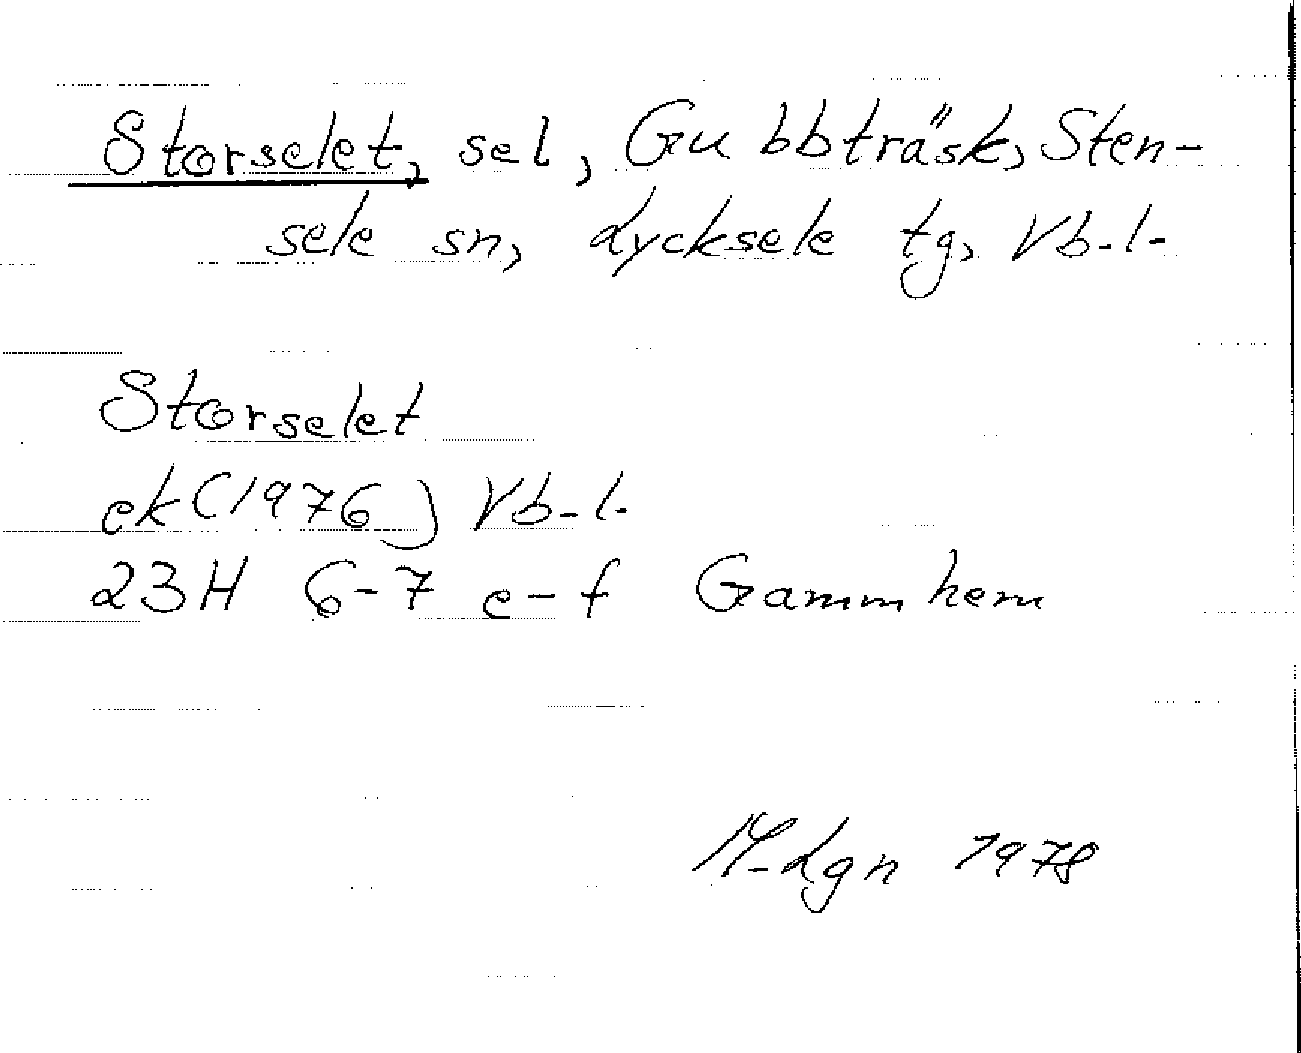 Storselet, sel, Gubbträsk, Sten-
sele sn, Lycksele tg, Vb.l.
Storselet
ek (1976) Vb-l.
23H 6-7 e-f Gammhem
M-Lgn 1978